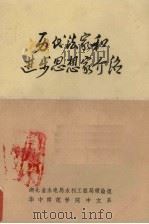 历代法家和
进步思想家介绍
湖北省水电局水利工程局理论组
华中师范学院中文系